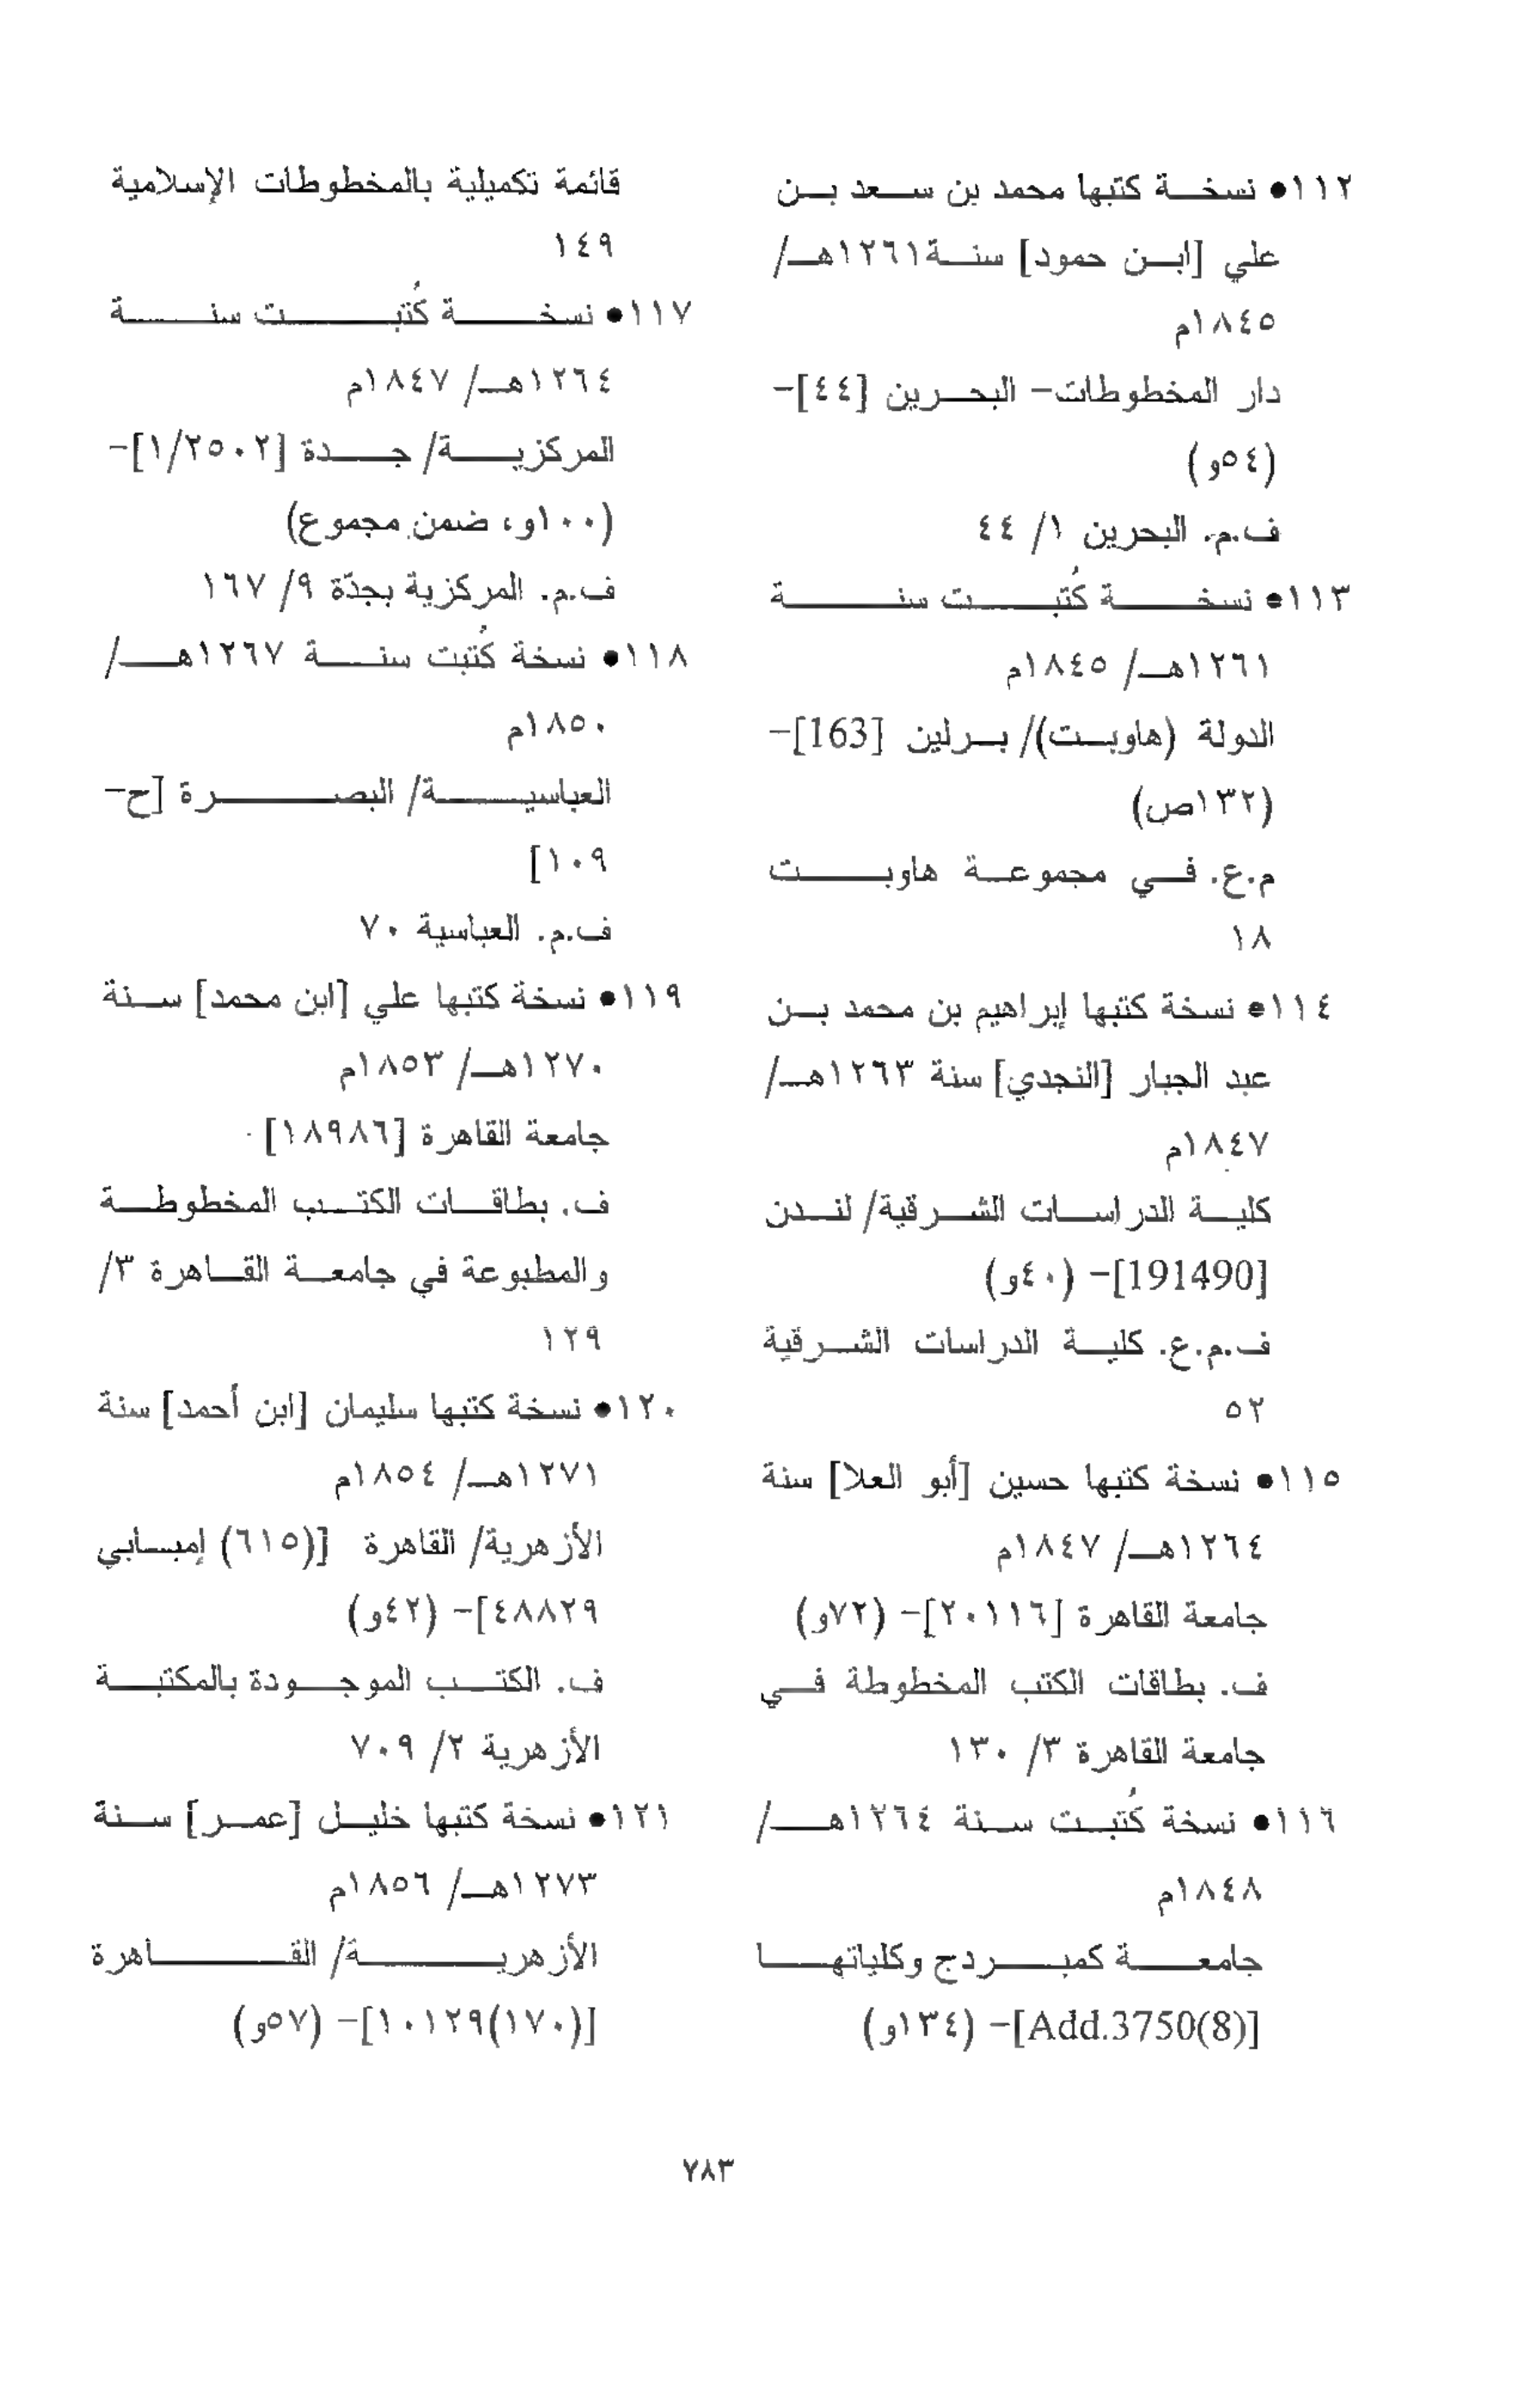 ١١٢● نسخة كتبها محمد بن سعد بن
علي [ابن حمود] سنة١٢٦١هـ/
١٨٤٥م
دار المخطوطات- البحرين [٤٤]-
(٥٤و)
ف.م. البحرين ١/ ٤٤
١١٣● نسخة كُتبت سنة
١٢٦١هـ/ ١٨٤٥م
الدولة (هاوبت)/ برلين [163]-
(١٣٢ص)
م.ع. في مجموعة هاوبت
١٨
١١٤● نسخة كتبها إبراهيم بن محمد بن
عبد الجبار [النجدي] سنة ١٢٦٣هـ/
١٨٤٧م
كلية الدراسات الشرقية/ لندن
[191490]- (٤٠و)
ف.م.ع. كلية الدراسات الشرقية
٥٢
١١٥● نسخة كتبها حسين [أبو العلا] سنة
١٢٦٤هـ/ ١٨٤٧م
جامعة القاهرة [٢٠١١٦]- (٧٢و)
ف. بطاقات الكتب المخطوطة في
جامعة القاهرة ٣/ ١٣٠
١١٦● نسخة كُتبت سنة ١٢٦٤هـ/
١٨٤٨م
جامعة كمبردج وكلياتها
[Add.3750(8)]- (١٣٤و)
قائمة تكميلية بالمخطوطات الإسلامية
١٤٩
١١٧● نسخة كُتبت سنة
١٢٦٤هـ/ ١٨٤٧م
المركزية/ جدة [١/٢٥٠٢]-
(١٠٠و، ضمن مجموع)
ف.م. المركزية بجدّة ٩/ ١٦٧
١١٨● نسخة كُتبت سنة ١٢٦٧هـ/
١٨٥٠م
العباسية/ البصرة [ح-
١٠٩]
ف.م. العباسية ٧٠
١١٩● نسخة كتبها علي [ابن محمد] سنة
١٢٧٠هـ/ ١٨٥٣م
جامعة القاهرة [١٨٩٨٦]
ف. بطاقات الكتب المخطوطة
والمطبوعة في جامعة القاهرة ٣/
١٢٩
١٢٠● نسخة كتبها سليمان [ابن أحمد] سنة
١٢٧١هـ/ ١٨٥٤م
الأزهرية/ القاهرة [(٦١٥) إمبابي
٤٨٨٢٩]- (٤٢و)
ف. الكتب الموجودة بالمكتبة
الأزهرية ٢/ ٧٠٩
١٢١● نسخة كتبها خليل [عمر] سنة
١٢٧٣هـ/ ١٨٥٦م
الأزهرية/ القاهرة
[(١٧٠)١٠١٢٩]- (٥٧و)
٧٨٣